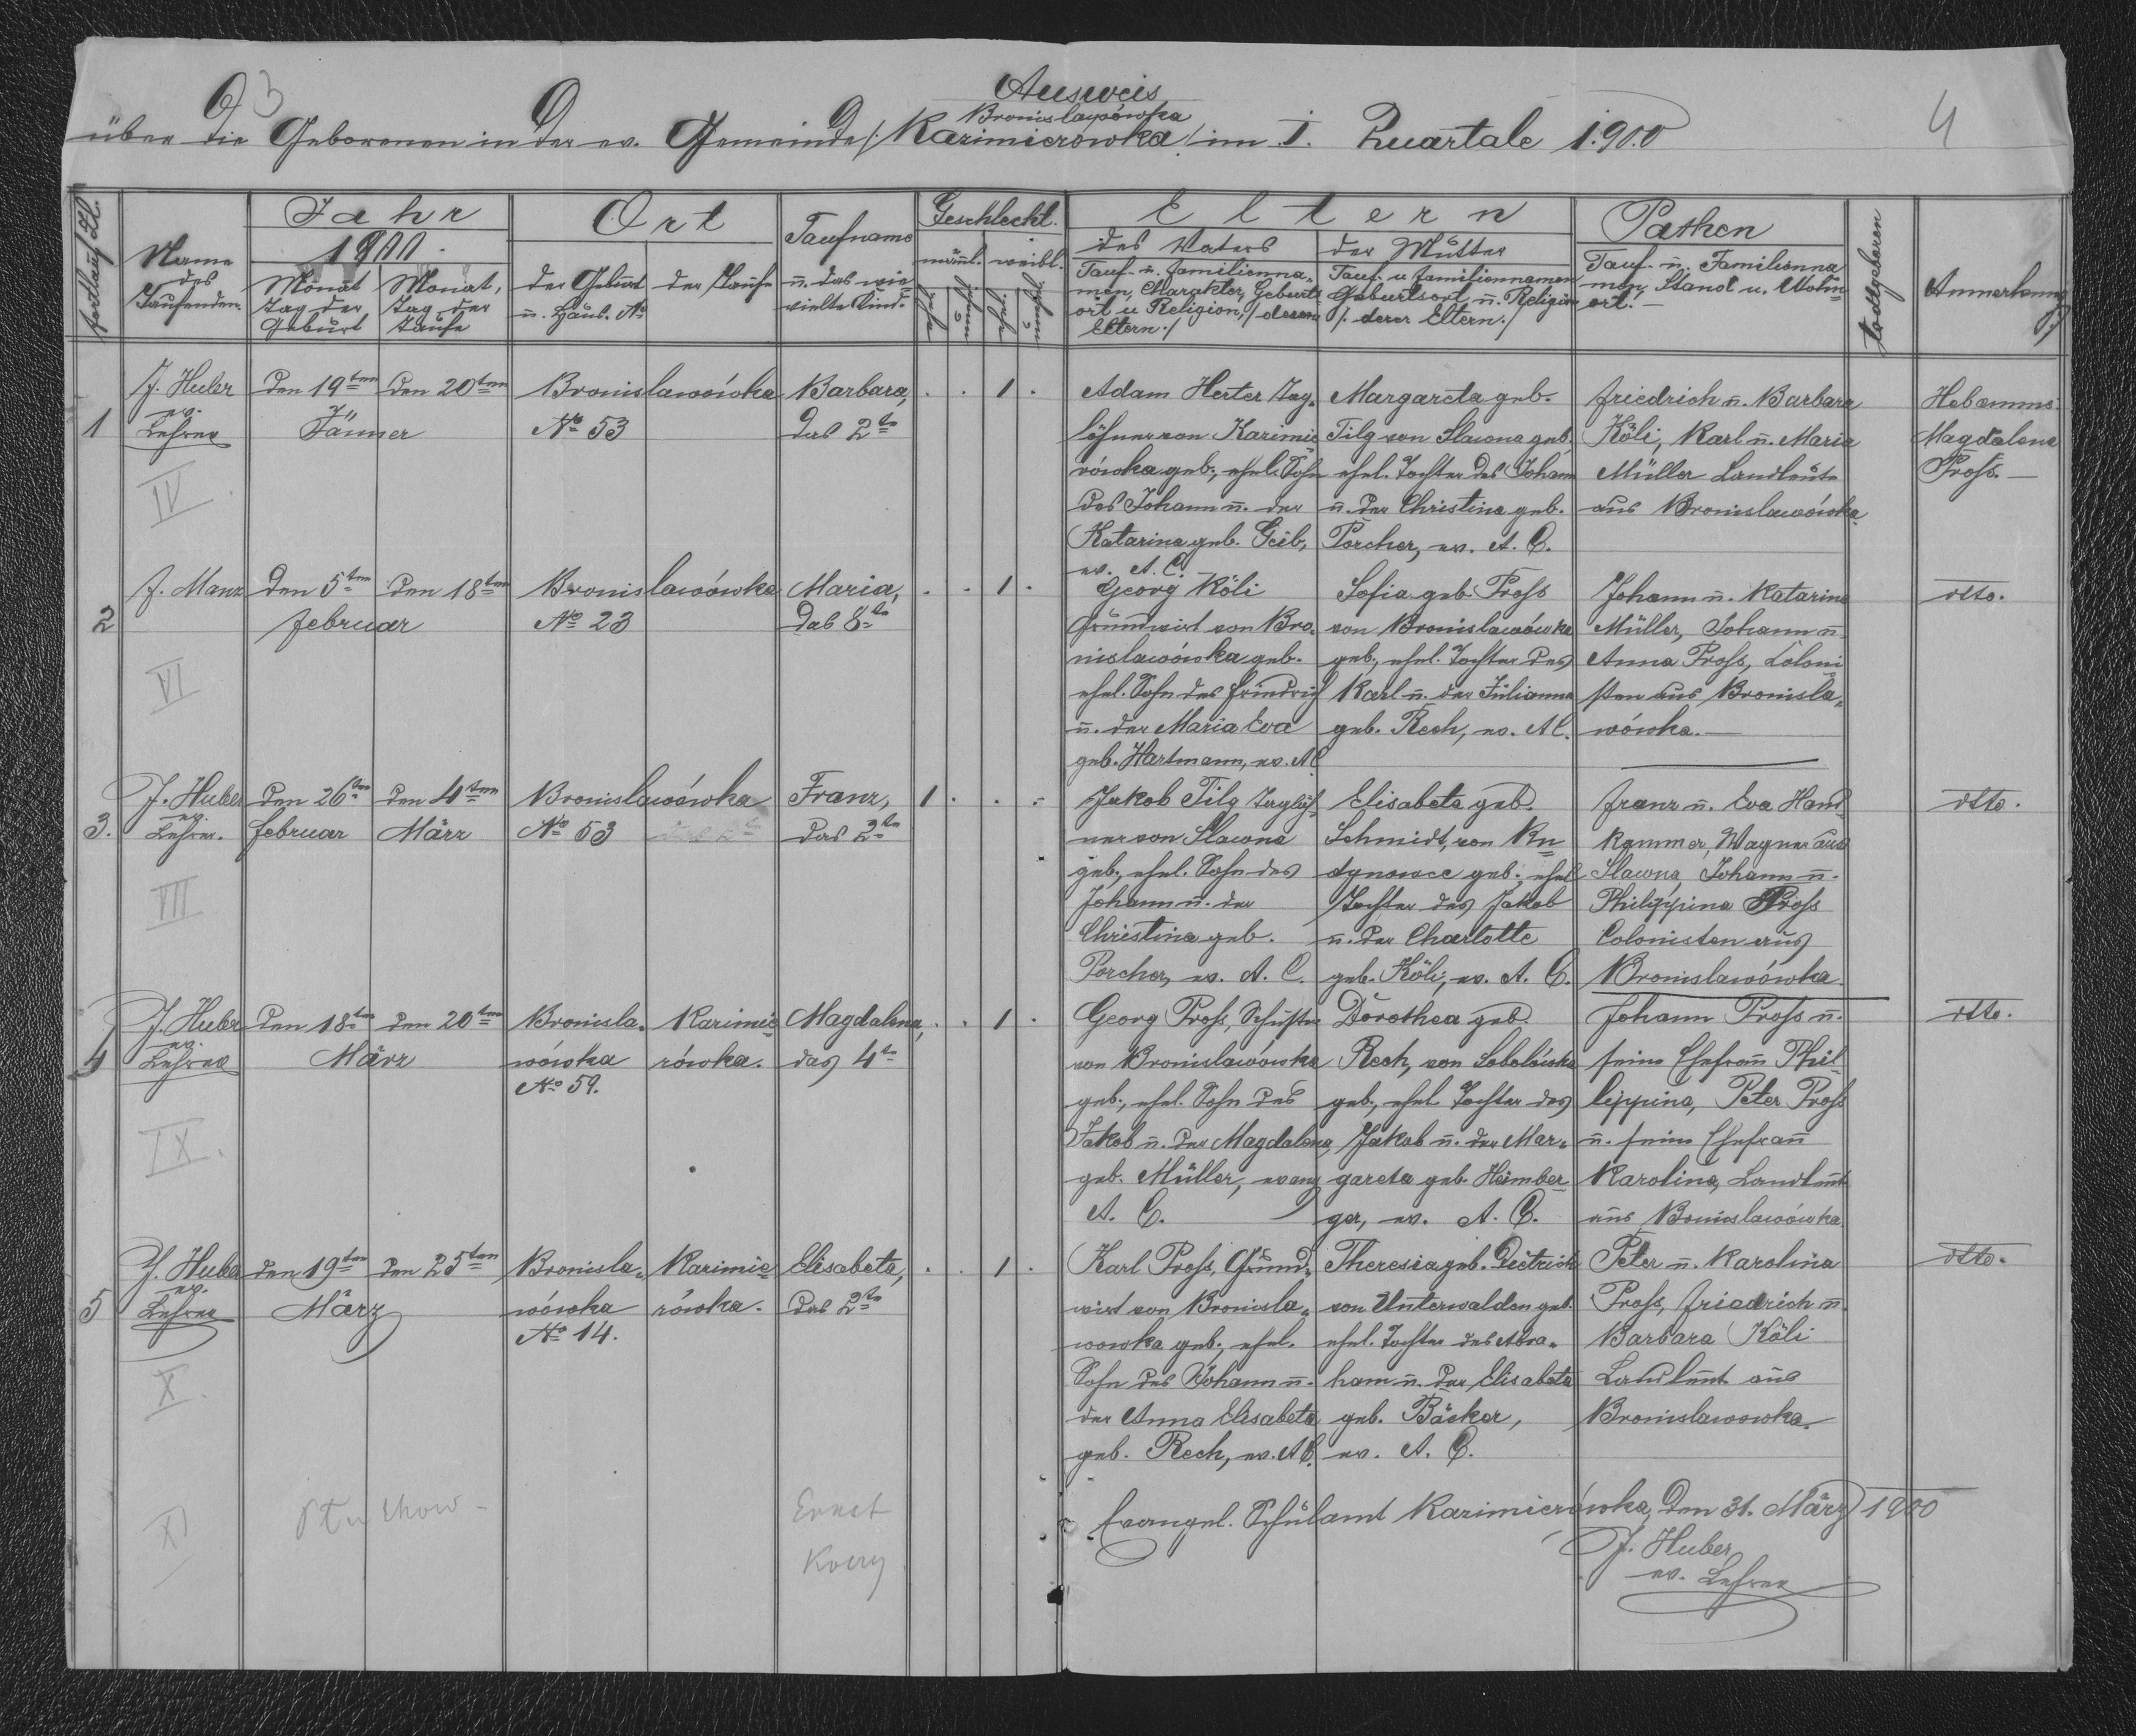 Ausweis
Bronislawówka
über die Geborenen in der ev. Gemeinde /: Kazimierowka :/ im I. Quartale 1.90.0
3
4
fortlauf. Zl.
Name des Taufenden
Jahr
1900.
Monat Tag der Geburt
Monat, Tag der Taufe
Ort
der Geburt u. Haus. No
der Taufe
Taufname u. das wie vielte Kind.
Geschlecht.
männl. weibl.
Eltern
des Vaters
Tauf- u. Familienna-
men, Charakter, Geburts
ort u Religion, / deren
Eltern. /
der Mutter
Tauf- u Familiennamen
Geburtsort u. Religion
/. derer Eltern. /
Pathen
Tauf- u. Familienna
men, Stand u. Wohn
ort. —
todtgeboren
Anmerkung
1
J. Huber
ev.
Lehrer
IV
den 19ten
den 20ten
Jänner
Bronislawówka
No 53
Barbara,
das 2te
. . 1 .
Adam Herter Tag-
löhner von Kazimie
rówka geb., ehel. Sohn
des Johann u. der
Katarina geb. Geib,
ev. A. C.
Margareta geb.
Tilg von Slawna geb.
ehel. Tochter des Johann
u. der Christina geb.
Porcher, ev. A. C.
Friedrich u. Barbara
Köli, Karl u. Maria
Müller Landleute
aus Bronislawówka.
Hebamme
Magdalena
Pross. —
2
J. Manz
VI
den 5ten
den 18ten
Februar
Bronislawówka
No 23
Maria,
das 8te
. . 1 .
Georg Köli
Grundwirt von Bro-
nislawówka geb.
ehel. Sohn des Friedrich
u. der Maria Eva
geb. Hartmann, ev. AC
Sofia geb. Pross
von Bronislawówka
geb., ehel. Tochter des
Karl u. der Julianna
geb. Rech, ev. A C.
Johann u. Katarina
Müller, Johann u
Anna Pross, Coloni
sten aus Bronisla-
wówka. —
dtto.
3.
J. Huber
ev.
Lehrer.
VII
den 26ten
Februar
den 4ten
März
Bronislawówka
No 53
Franz,
das 2te
1 . . .
Jakob Tilg Taglöh
ner von Slawna
geb., ehel. Sohn des
Johann u. der
Christina geb.
Porcher, ev. A. C.
Elisabeta geb.
Schmidt, von Ru
dynowce geb., ehel
Tochter des Jakob
u. der Charlotte
geb. Köli, ev. A. C.
Franz u. Eva Hand
kammer, Wagner aus
Slawna, Johann u.
Philippina Pross
Colonisten aus
Bronislawówka.
dtto.
4
J. Huber
ev.
Lehrer
IX.
den 18ten
den 20ten
März
Bronisla-
wówka
No 59.
Kazimie
rówka.
Magdalena,
das 4te
. . 1 .
Georg Pross, Schuster
von Bronislawówka
geb., ehel. Sohn des
Jakob u. der Magdalena,
geb. Müller, evang
A. C.
Dorothea geb.
Rech, von Sobolówka
geb., ehel. Tochter des
Jakob u. der Mar-
gareta geb. Heimber
ger, ev. A. C.
Johann Pross u.
seine Ehefrau Phil
lippina, Peter Pross
u. seine Ehefrau
Karolina, Landleute
aus Bronislawówka.
dtto.
5
J. Huber
ev.
Lehrer
X.
den 19ten
den 25ten
März
Bronisla-
wówka
No 14.
Kazimie
rówka.
Elisabeta,
das 2te
. . 1 .
Karl Pross, Grund-
wirt von Bronisla-
wowka geb., ehel.
Sohn des Johann u.
der Anna Elisabeta
geb. Rech, ev. A C.
Theresia geb. Dietrich
von Unterwalden geb.
ehel. Tochter des Abra-
ham u. der Elisabeta
geb. Bäcker,
ev. A. C.
Peter u. Karolina
Pross, Friedrich u.
Barbara Köli
Landleute aus
Bronislawowka.
dtto.
XI
Ernst
Evangel. Schulamt Kazimierówka, den 31. März 1900
J. Huber
ev. Lehrer